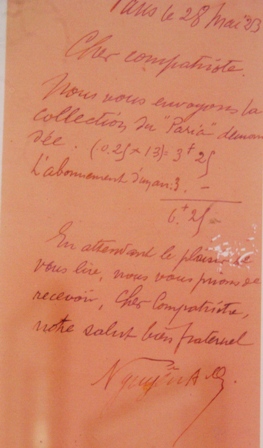 Paris le 28 Mai 23
Cher compatriote.
Nous vous envoyons la
collection du "Paria" deman
dée. (0.25 x 13) = 3f 25
L'abonnement d'un an: 3. -
6f. 25 =
En attendant le plaisir de
vous lire, nous vous prions de
recevoir, Cher Compatriote,
notre salut bien fraternel
Nguyên A. Q.